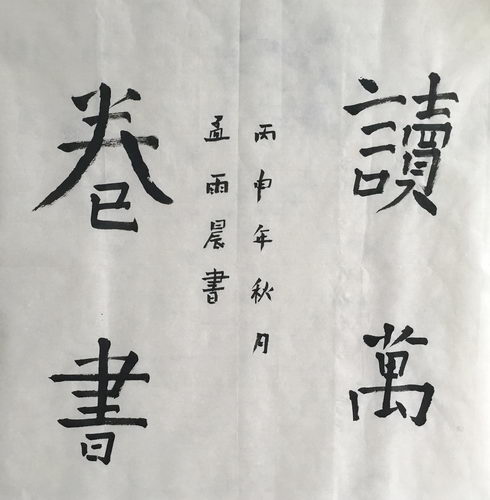 讀萬
丙申年秋月
孟雨晨書
卷書